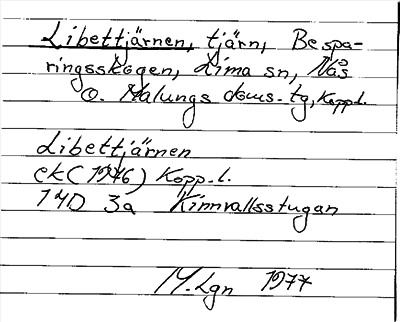 Libettjärnen, tjärn, Bespa-
ringsskogen, Lima sn, Nås
o. Malungs doms.tg, Kopp.l.
Libettjärnen
ek (1946) Kopp.l.
14D 3a Kinnvallsstugan
M.Lgn 1977